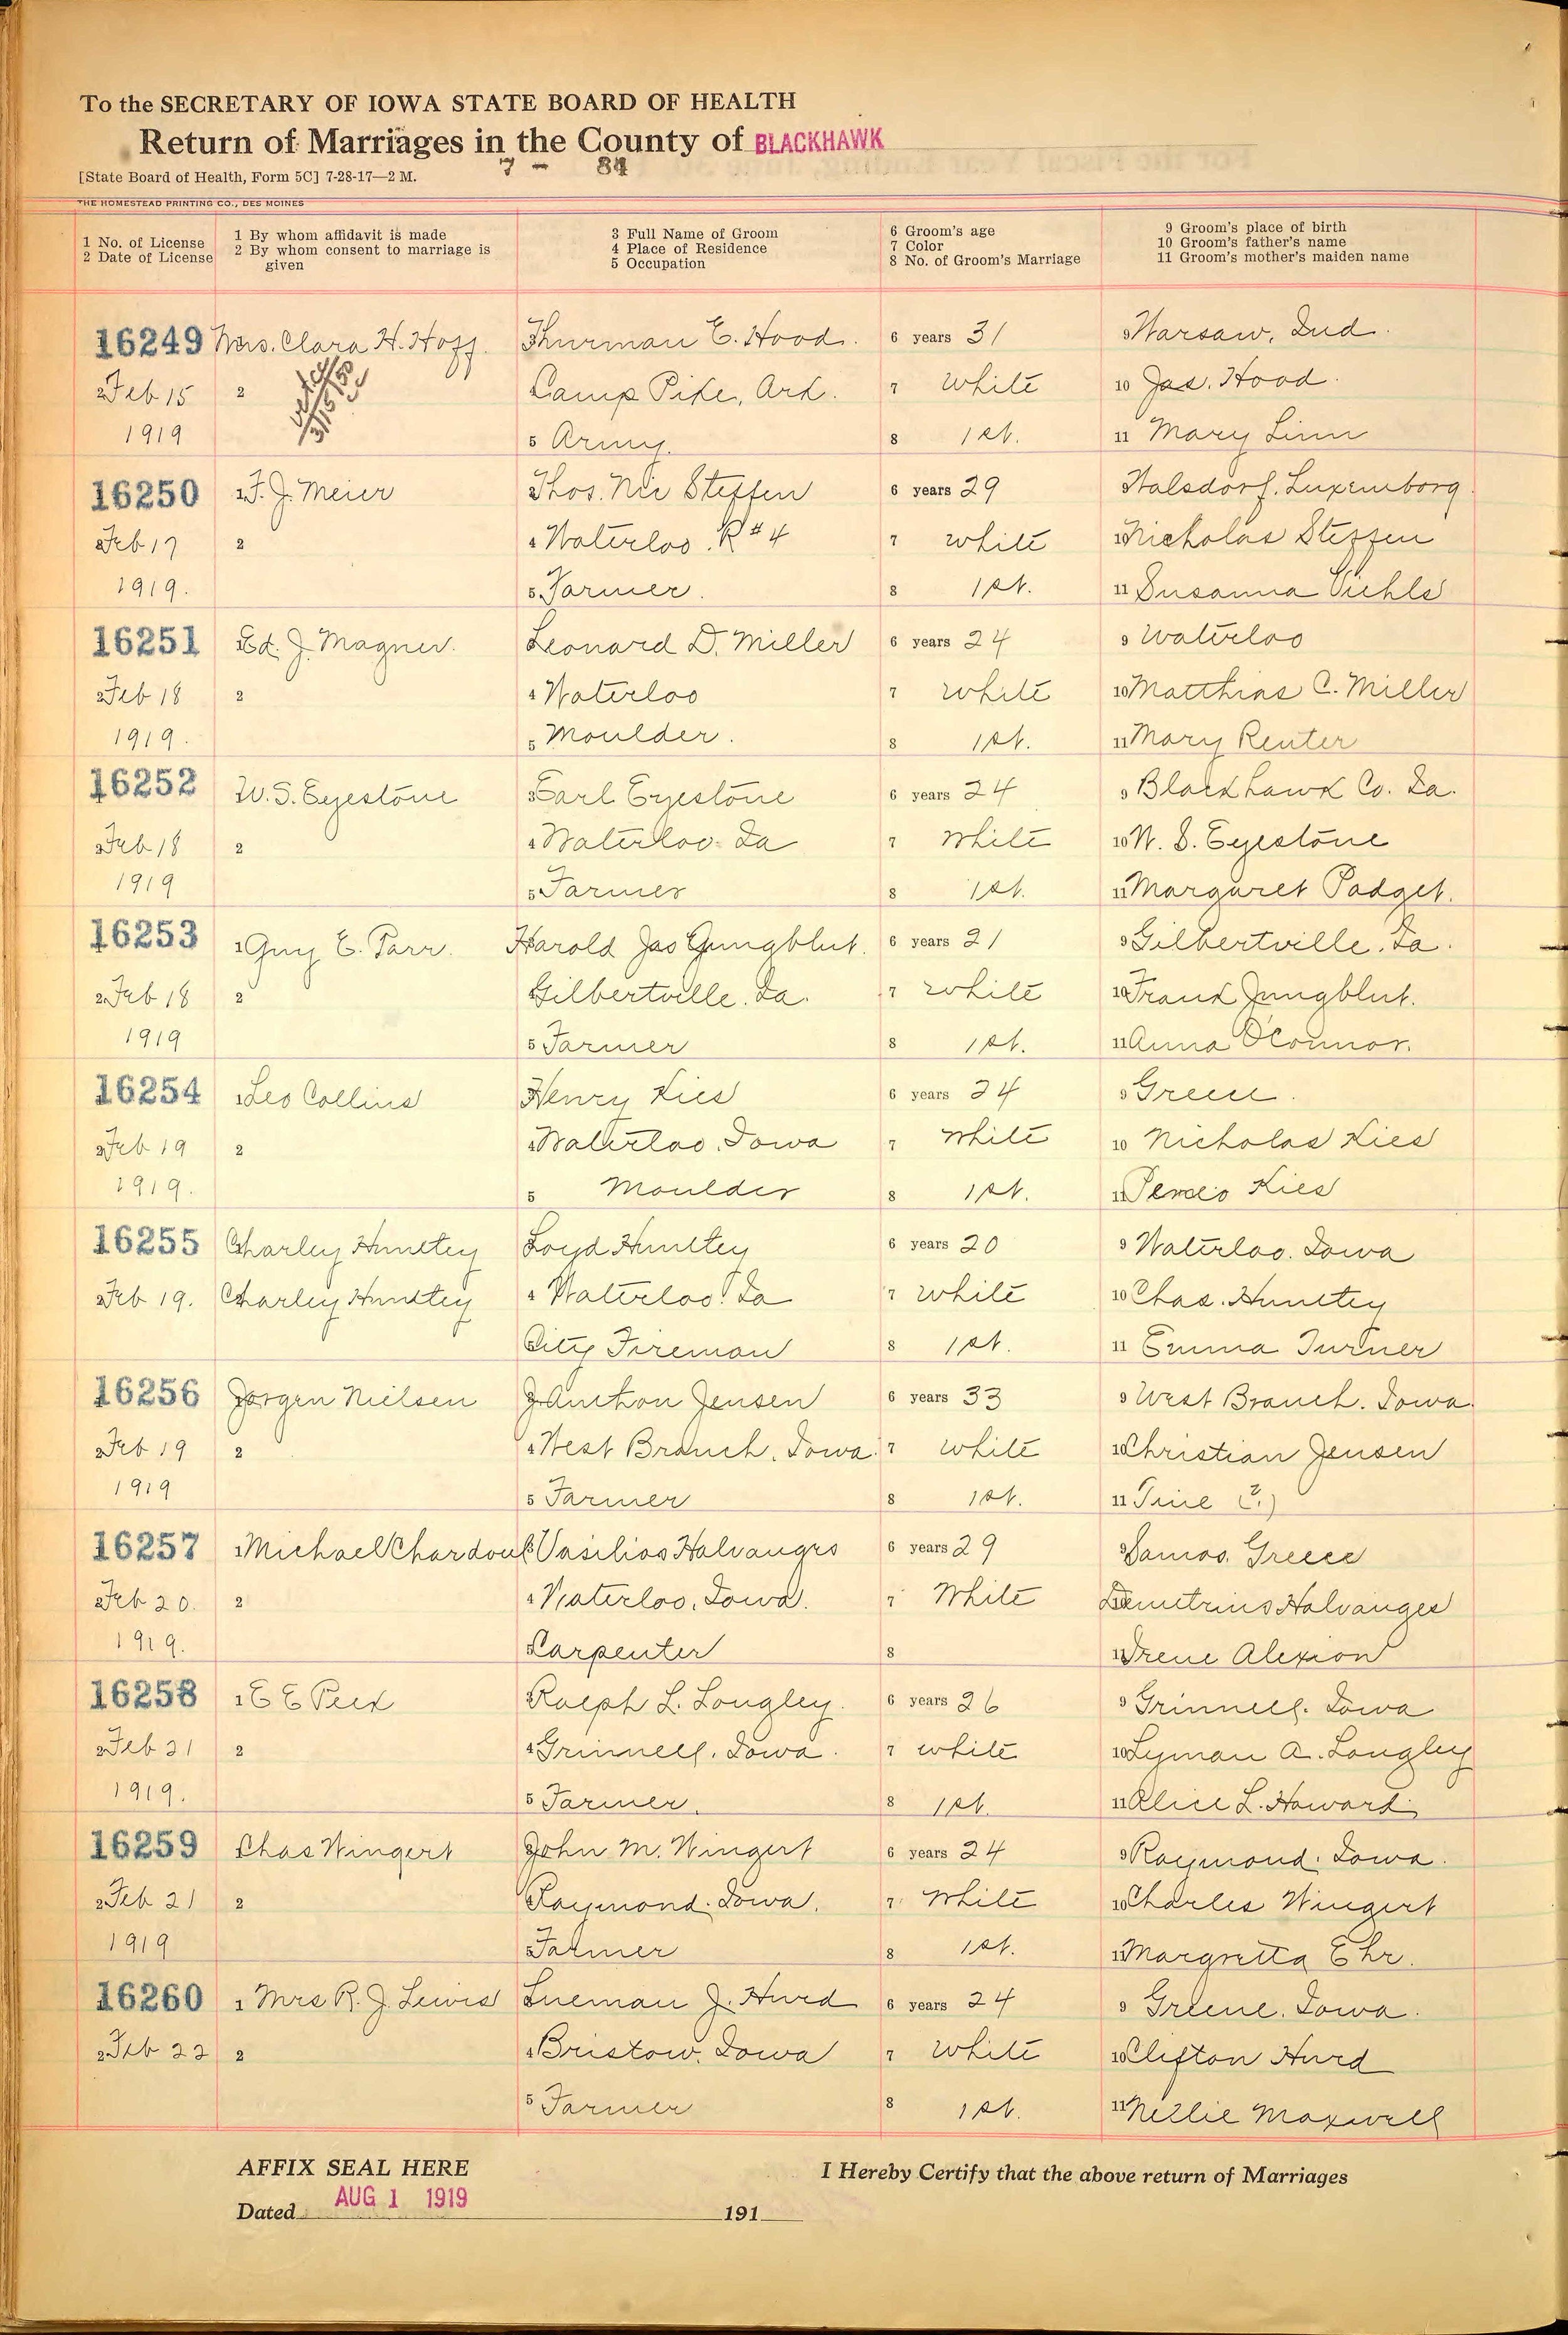 To the SECRETARY OF IOWA STATE BOARD OF HEALTH
Return of Marriages in the County of BLACKHAWK
7 - 84
[State Board of Health, Form 5C] 7-28-17—2 M.
THE HOMESTEAD PRINTING CO., DES MOINES
1 No. of License
2 Date of License
1 By whom affidavit is made
2 By whom consent to marriage is
given
3 Full Name of Groom
4 Place of Residence
5 Occupation
6 Groom's age
7 Color
8 No. of Groom's Marriage
9 Groom's place of birth
10 Groom's father's name
11 Groom's mother's maiden name
16249 Mrs. Clara H. Hoff. Thurman E. Hood. 6 years 31 9 Warsaw, Ind.
2 Feb 15 2 3/15/50 Camp Pike, Ark. 7 White 10 Jas. Hood.
1919 5 Army. 8 1st. 11 Mary Linn
16250 1 F. J. Meier Thos. Nic Steffen 6 years 29 9 Walsdorf. Luxemborg.
2 Feb 17 2 4 Waterloo. R#4 7 white 10 Nicholas Steffen
1919. 5 Farmer. 8 1st. 11 Susanna
16251 1 Ed. J. Magner. Leonard D. Miller 6 years 24 9 Waterloo
2 Feb 18 2 4 Waterloo 7 white 10 Matthias C. Miller
1919. 5 Moulder. 8 1st. 11 Mary Reuter
16252 W. S. Eyestone 3 Earl Eyestone 6 years 24 9 Blackhawk Co. Ia.
2 Feb 18 2 4 Waterloo. Ia 7 White 10 W. S. Eyestone
1919 5 Farmer 8 1st. 11 Margaret Padget.
16253 1 Guy E. Parr. Harold Jas Jungblut. 6 years 21 9 Gilbertville. Ia.
2 Feb 18 2 Gilbertville. Ia. 7 White 10 Frank Jungblut.
1919 5 Farmer 8 1st. 11 Anna O'Connor.
16254 1 Leo Collins Henry Kies 6 years 24 9 Greece.
2 Feb 19 2 4 Waterloo. Iowa 7 White 10 Nicholas Kies
1919. 5 Moulder 8 1st. 11 Kies
16255 Charley Huntley Loyd Huntley 6 years 20 9 Waterloo. Iowa
2 Feb 19. Charley Huntley 4 Waterloo. Ia 7 White 10 Chas. Huntley
5 City Fireman 8 1st. 11 Emma Turner
16256 Jorgen Nielsen J. Anthon Jensen 6 years 33 9 West Branch. Iowa.
2 Feb 19 2 4 West Branch. Iowa. 7 white 10 Christian Jensen
1919 5 Farmer 8 1st. 11 Tine (?)
16257 1 Michael Chardoul 3 Vasilios Halvanges 6 years 29 9 Samos. Greece
2 Feb 20. 2 4 Waterloo, Iowa. 7 White 10 Demetrius Halvanges
1919. 5 Carpenter 8 11 Irene Alexion
16258 1 E E Peek Ralph L. Longley. 6 years 26 9 Grinnell. Iowa
2 Feb 21 2 4 Grinnell. Iowa. 7 white 10 Lyman A. Longley
1919. 5 Farmer. 8 1st. 11 Alice L. Howard.
16259 Chas Wingert John M. Wingert 6 years 24 9 Raymond. Iowa.
2 Feb 21 2 4 Raymond. Iowa. 7 White 10 Charles Wingert
1919 5 Farmer 8 1st. 11 Margretta Ehr.
16260 1 Mrs R. J. Lewis Lueman J. Hurd 6 years 24 9 Greene. Iowa.
2 Feb 22 2 4 Bristow. Iowa 7 White 10 Clifton Hurd
5 Farmer 8 1st. 11 Nellie Maxwell
AFFIX SEAL HERE
I Hereby Certify that the above return of Marriages
Dated AUG 1 1919 191